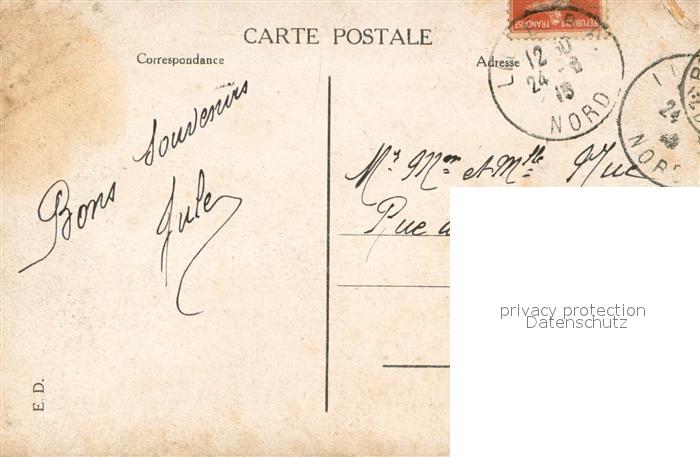 CARTE POSTALE
Correspondance
Adresse
RÉPUBLIQUE FRANÇAISE
12 30
24 - 8
15
NORD
24
NORD
Bons Souvenirs
Jules
Mr Mme et Mlle
Rue
privacy protection
Datenschutz
E. D.